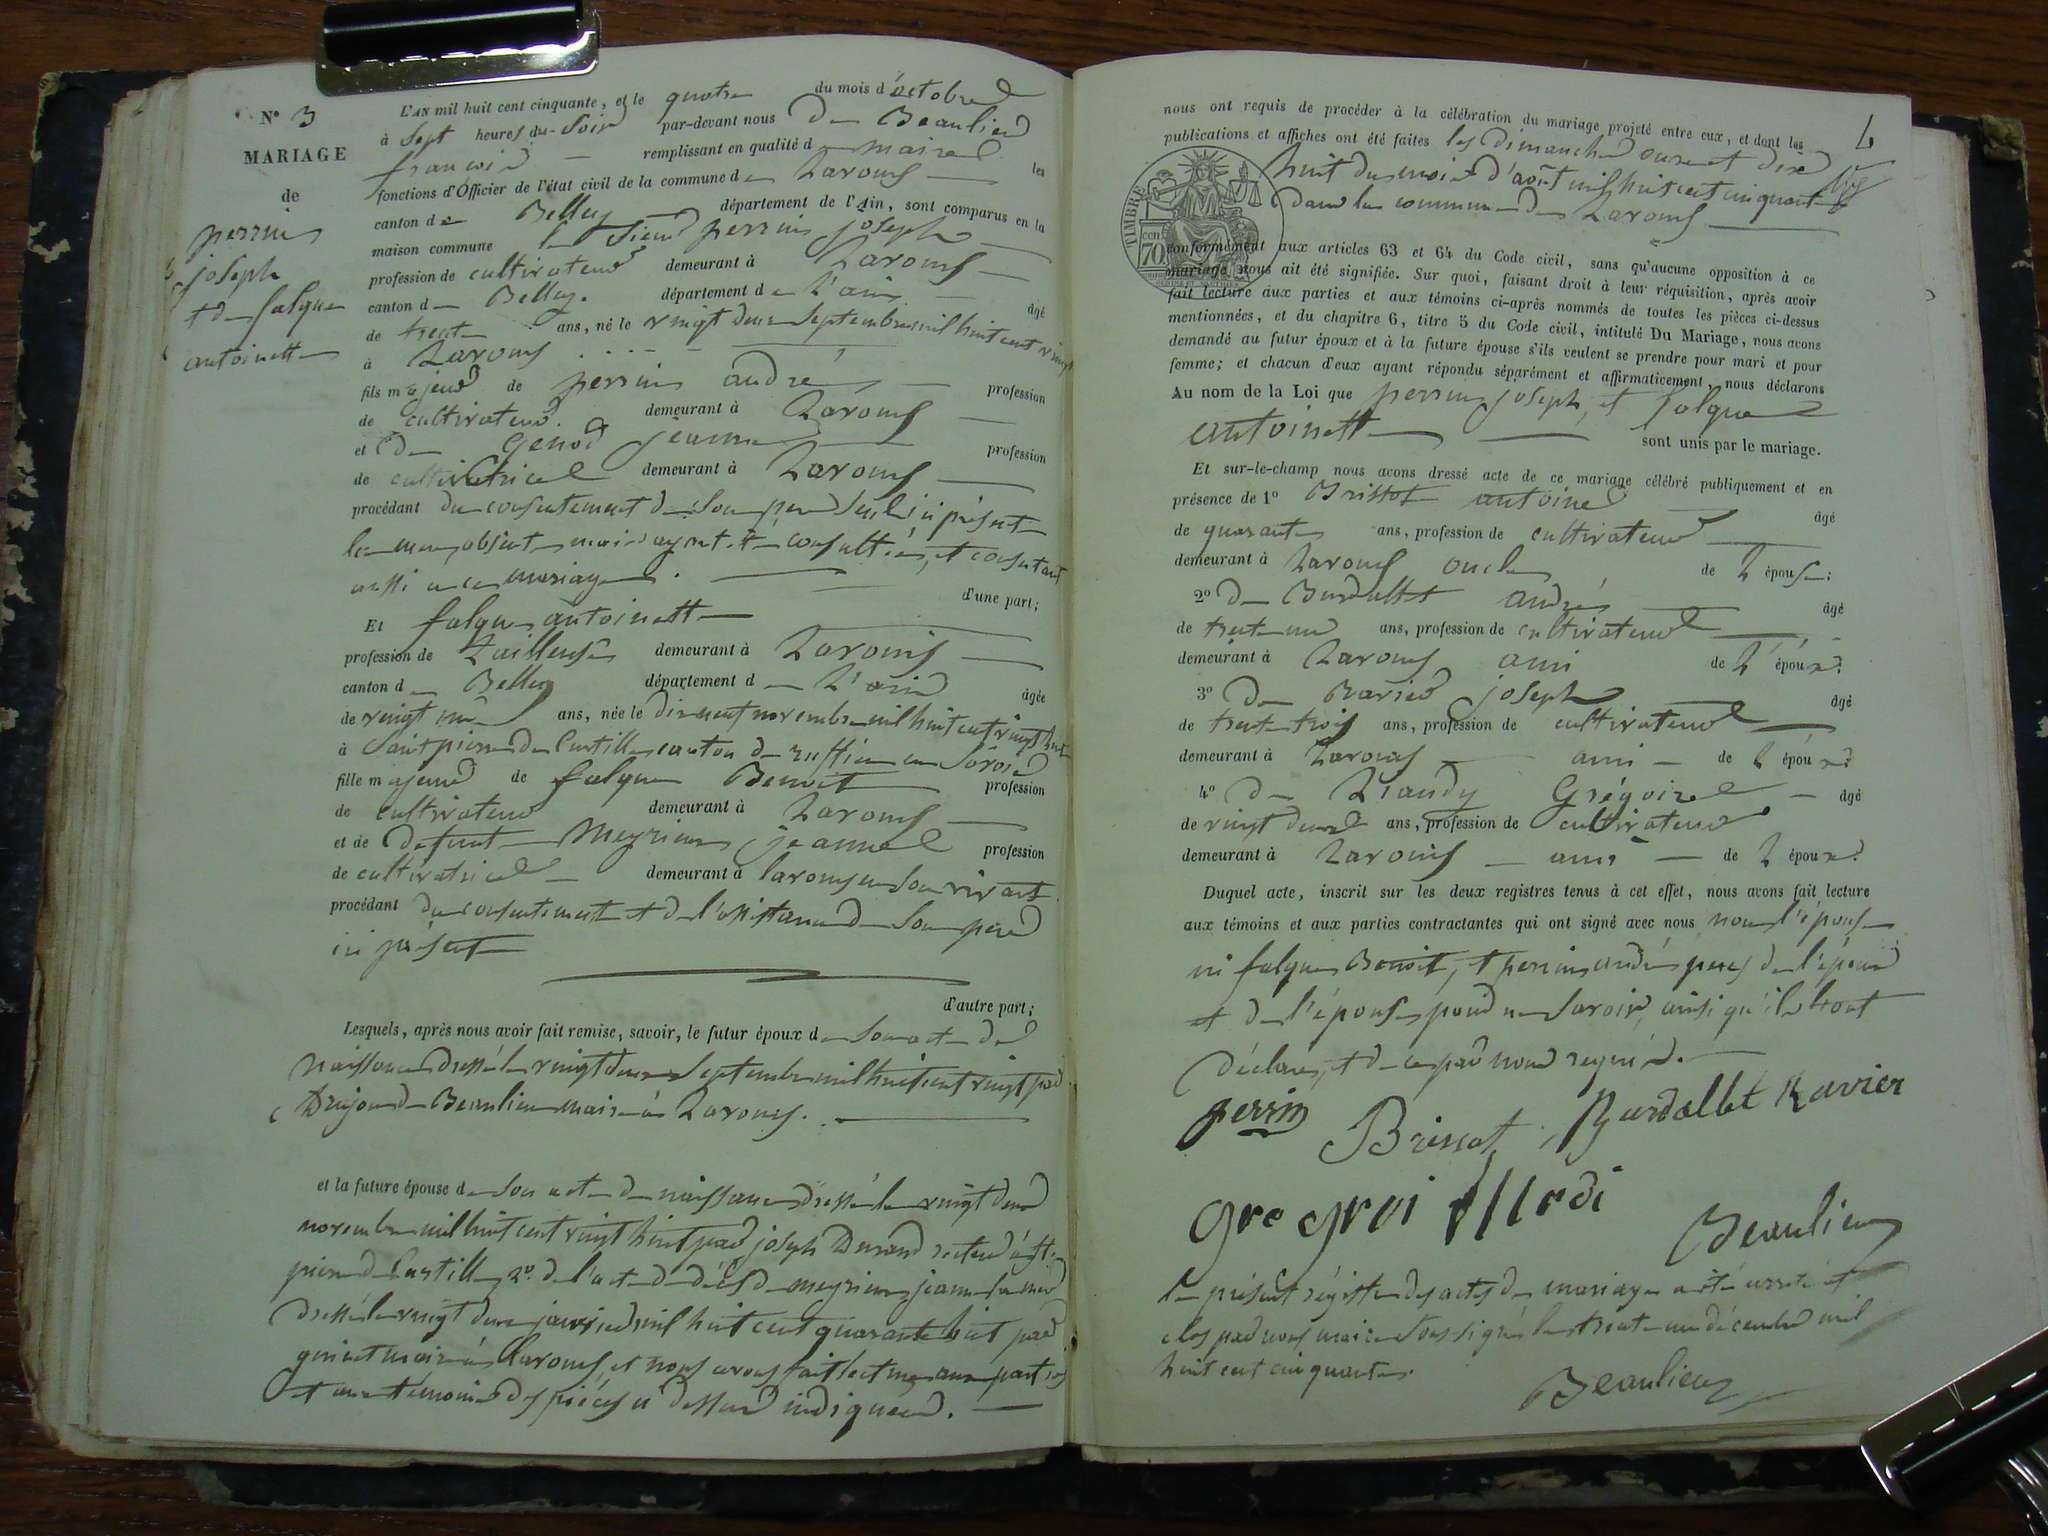 N° 3
MARIAGE
de
perrin
joseph
et de falque
antoinette
L'AN mil huit cent cinquante, et le quatre du mois d'octobre
à sept heures du soir par-devant nous De Beaulieu
françois remplissant en qualité de maire les
fonctions d'Officier de l'état civil de la commune de Lavours
canton de Belley département de l'Ain, sont comparus en la
maison commune le Sieur perrin joseph
profession de cultivateur demeurant à Lavours
canton de Belley. département de L'ain âgé
de trente ans, né le vingt deux Septembre mil huit cent vingt
à Lavours
fils majeur de perrin andré profession
de cultivateur. demeurant à Lavours
et De Genod jeanne profession
de cultivatrice demeurant à Lavours
procédant du consentement de Son pere Seul ici présent
la mere absente mais ayant été consultée, et consentant
aussi a ce mariage.
d'une part;
Et falque antoinette
profession de Tailleuse demeurant à Lavours
canton de Belley département de L'ain âgée
de vingt un ans, née le dix neuf novembre mil huit cent vingt huit
à Saint pierre de Curtille canton de ruffieu en Savoie
fille majeure de falque Benoit profession
de cultivateur demeurant à Lavours
et de defunte Meyrieu jeanne profession
de cultivatrice demeurant à lavours en Son vivant
procédant du consentement et de l'assistance de Son pere
ici présent
d'autre part;
Lesquels, après nous avoir fait remise, savoir, le futur époux de Son acte de
naissance dressé le vingt deux Septembre mil huit cent vingt par
Dujour de Beaulieu maire à Lavours.
et la future épouse de Son acte de naissance dressé le vingt deux
novembre mil huit cent vingt huit par joseph Durand recteur à St
pierre de Curtille, 2° de l'acte de décès de meyrieu jeanne Sa mere
dressé le vingt deux janvier mil huit cent quarante huit par
maire à Lavours, et nous avons fait lecture aux parties
et aux témoins des pièces ci dessus indiquées.
nous ont requis de procéder à la célébration du mariage projeté entre eux, et dont les
publications et affiches ont été faites les dimanches onze et dix
huit du mois d'août mil huit cent cinquante
dans la commune de Lavours
TIMBRE
70 cen
conformément aux articles 63 et 64 du Code civil, sans qu'aucune opposition à ce
mariage nous ait été signifiée. Sur quoi, faisant droit à leur réquisition, après avoir
fait lecture aux parties et aux témoins ci-après nommés de toutes les pièces ci-dessus
mentionnées, et du chapitre 6, titre 5 du Code civil, intitulé Du Mariage, nous avons
demandé au futur époux et à la future épouse s'ils veulent se prendre pour mari et pour
femme; et chacun d'eux ayant répondu séparément et affirmativement, nous déclarons
Au nom de la Loi que perrin joseph, et falque
antoinette sont unis par le mariage.
Et sur-le-champ nous avons dressé acte de ce mariage célébré publiquement et en
présence de 1° Brissot antoine âgé
de quarante ans, profession de cultivateur
demeurant à Lavours oncle de L'épouse;
2° De Burdallet andré âgé
de trente un ans, profession de cultivateur
demeurant à Lavours ami de L'époux;
3° De Ravier joseph âgé
de trente trois ans, profession de cultivateur
demeurant à Lavours ami de L'époux;
4° De Grégoire âgé
de vingt deux ans, profession de cultivateur
demeurant à Lavours ami de L'époux;
Duquel acte, inscrit sur les deux registres tenus à cet effet, nous avons fait lecture
aux témoins et aux parties contractantes qui ont signé avec nous non l'épouse
ni falque Benoit, et perrin andré peres de l'époux
et de l'épouse pour ne Savoir, ainsi qu'ils l'ont
déclaré, et de ce par nous requis.
perrin Brissot Burdallet Ravier
gregroi
Beaulieu
Le présent régistre des actes de mariage a été arrêté et
clos par nous maire Soussigné le trente un décembre mil
huit cent cinquante.
Beaulieu